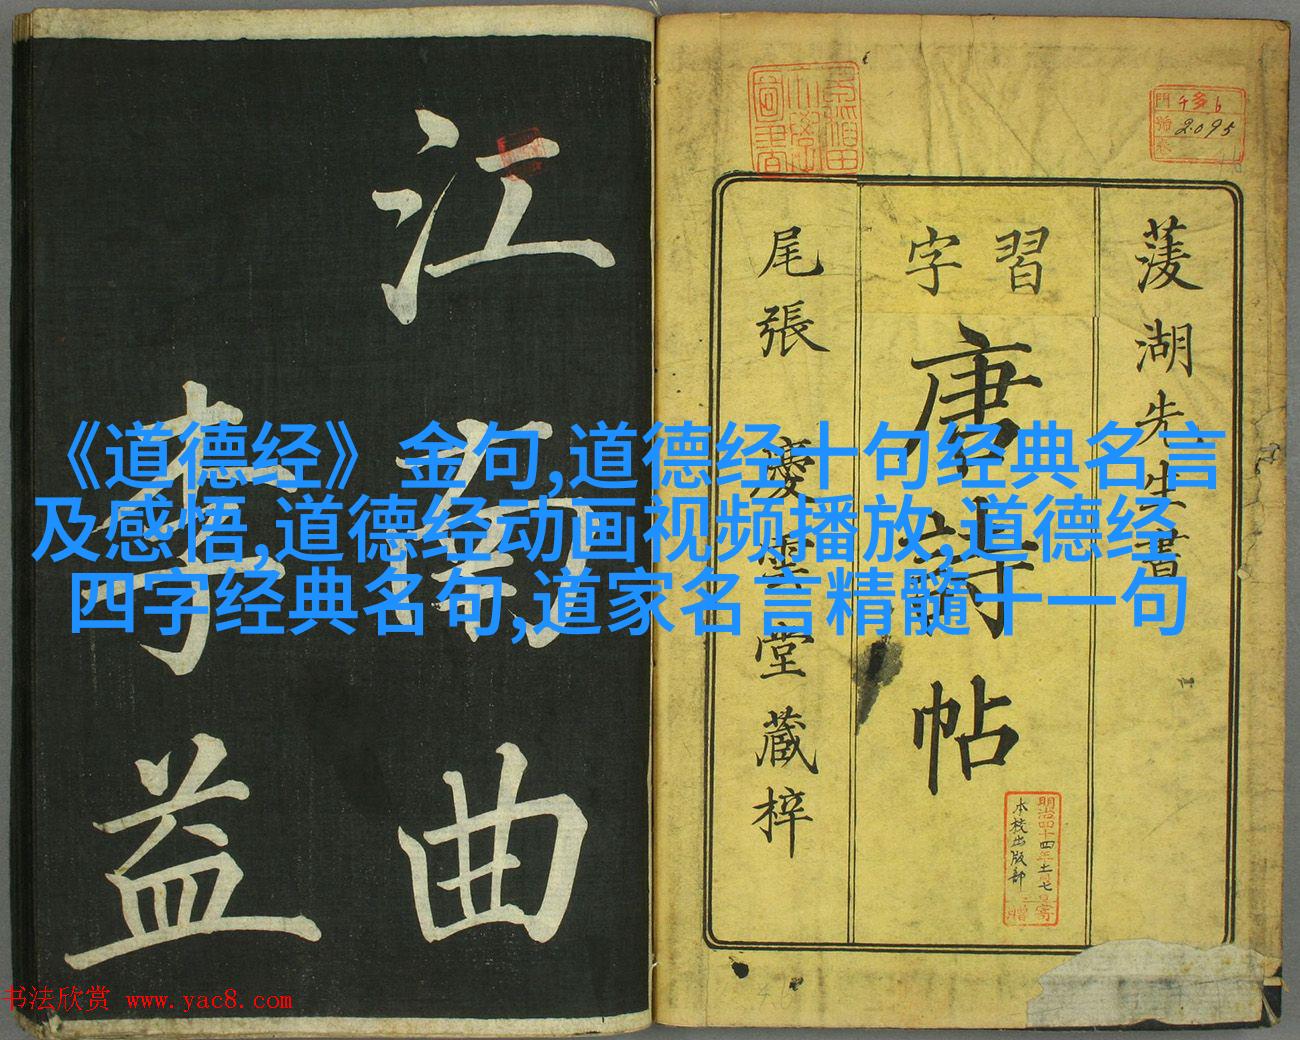 江南曲
李益
早稲田大學圖書
門 チ多6
號 2095
卷
菱湖先生書
習字
唐詩帖
尾張 慶雲堂藏梓
明治四十四年十一月七日寄贈
本校出版部
《道德经》金句,道德经十句经典名言
及感悟,道德经动画视频播放,道德经
四字经典名句,道家名言精髓十一句
书法欣赏 www.yac8.com